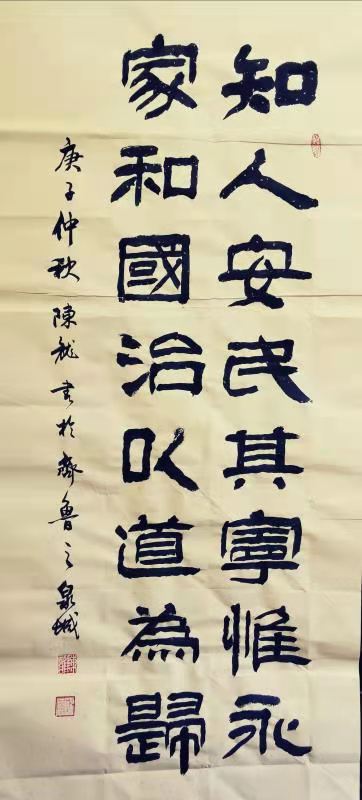 知人安民其寧惟永
家和國治以道為歸
庚子仲秋陳龍書於齊魯之泉城